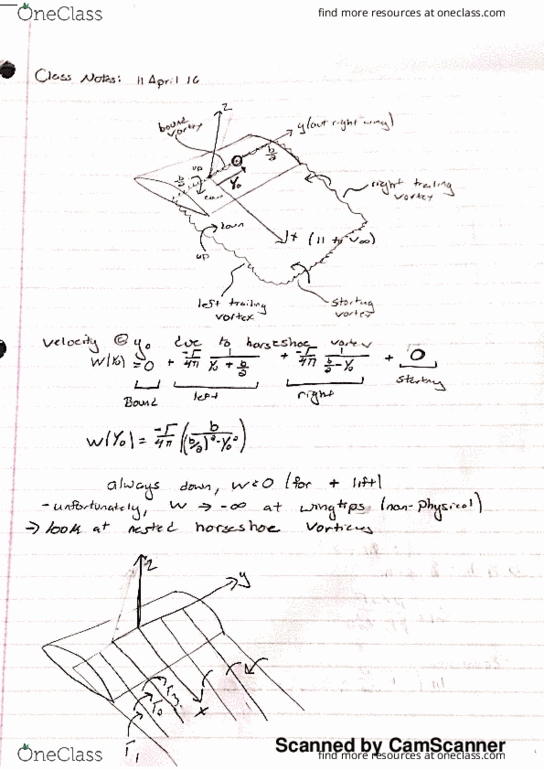 OneClass
find more resources at oneclass.com
Class Notes: 11 April 16
z
bound vortex
y (out right wing)
b/2
up
b/2
y₀
down
right trailing vortex
down
x (11 to V∞)
up
left trailing vortex
starting vortex
velocity @ y₀ due to horseshoe vortex
W(y₀) = 0 + -Γ/4π 1/(y₀ + b/2) + -Γ/4π 1/(b/2 - y₀) + 0
Bound left right starting
W(y₀) = -Γ/4π (b/((b/2)² - y₀²))
always down, w<0 (for + lift)
- unfortunately, W → -∞ at wingtips (non-physical)
→ look at nested horseshoe vorticies
z
y
x
Γ₁
Scanned by CamScanner
OneClass
find more resources at oneclass.com